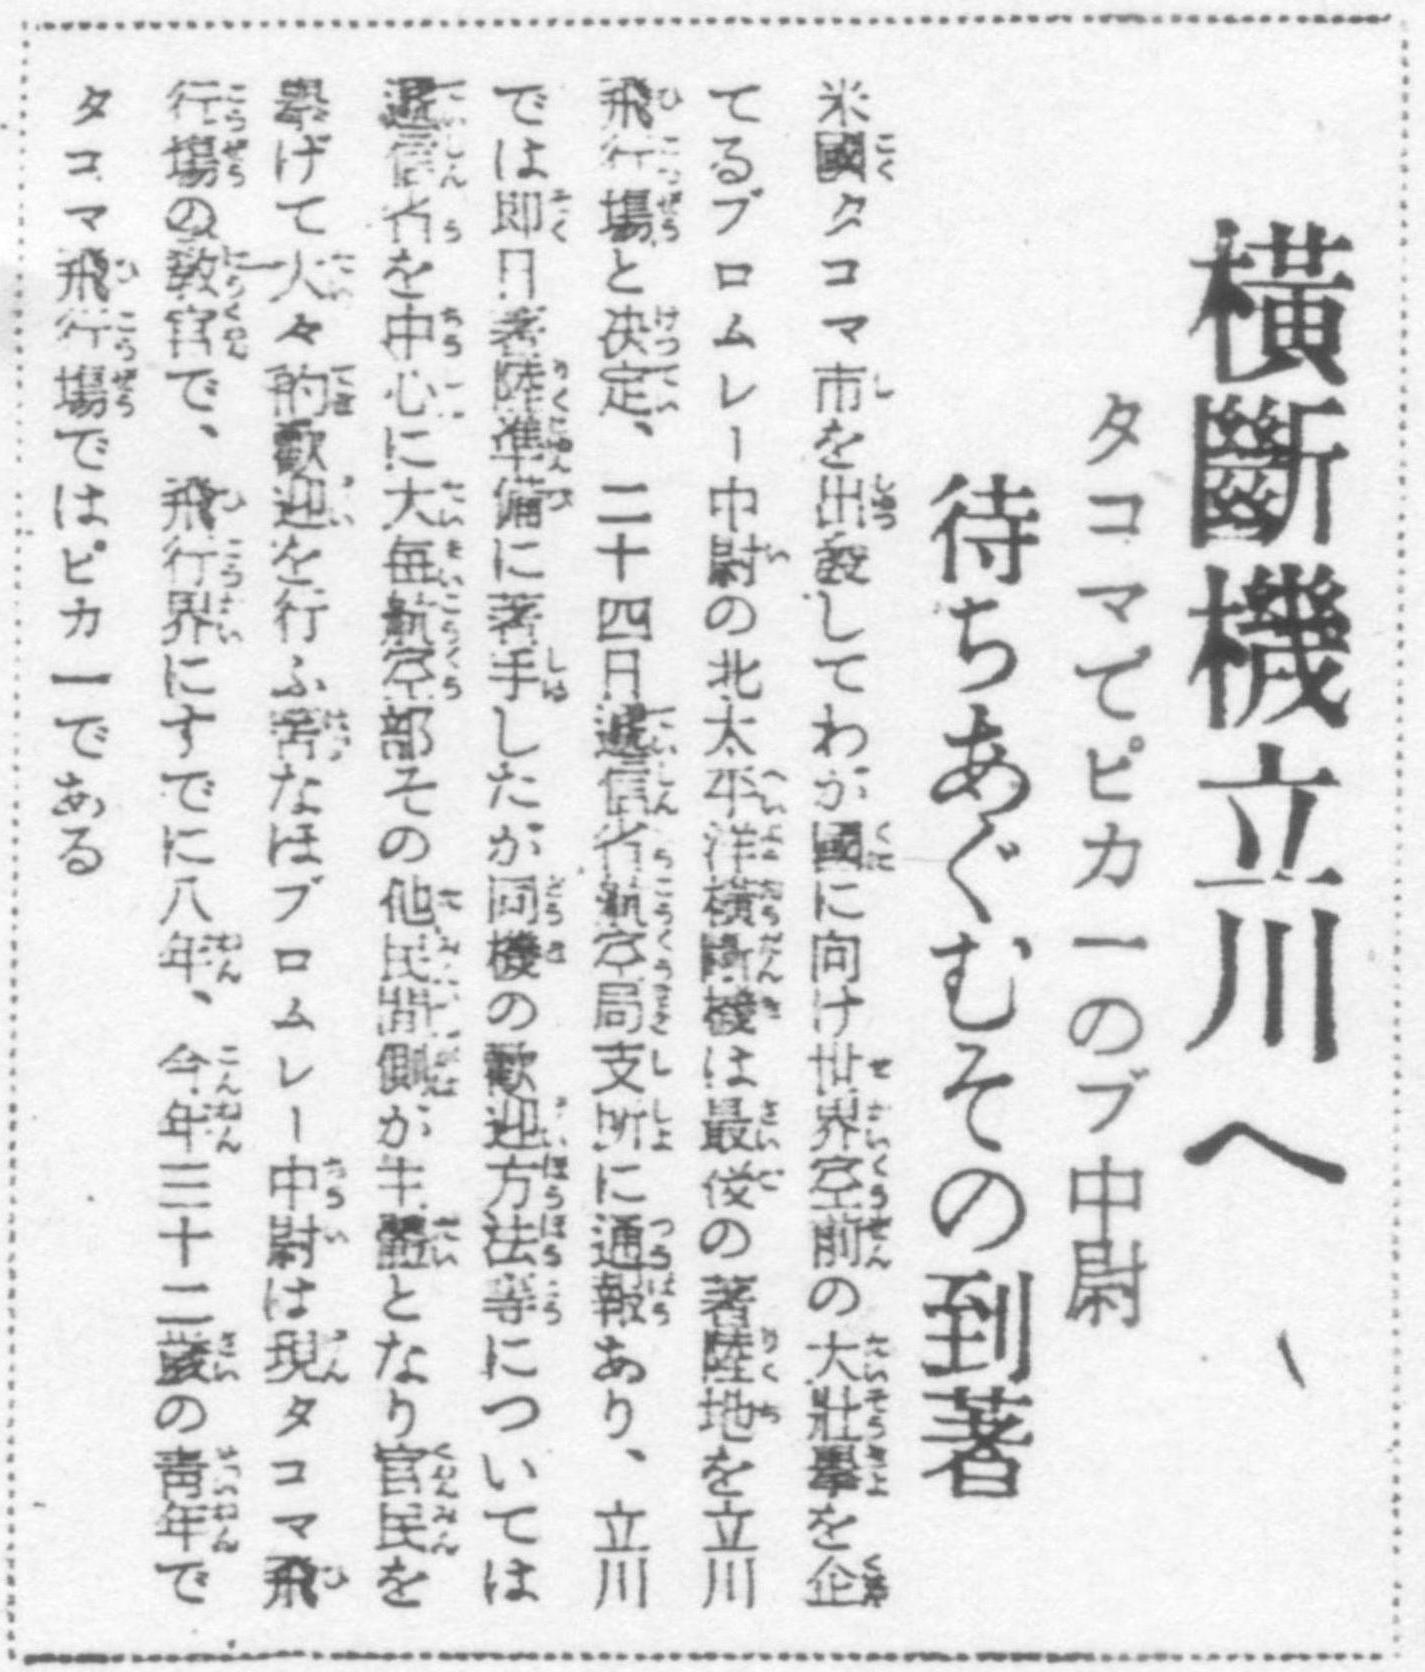 橫斷機立川へ
タコマでピカ一のブ中尉
待ちあぐむその到著
米國タコマ市を出發してわが國に向け世界空前の大壯擧を企
てるブロムレー中尉の北太平洋橫斷機は最後の著陸地を立川
飛行場と決定、二十四日遞信省航空局支所に通報あり、立川
では即日著陸準備に著手したが同機の歡迎方法等については
遞信省を中心に大每航空部その他民間側が主體となり官民を
擧げて大々的歡迎を行ふ筈なほブロムレー中尉は現タコマ飛
行場の敎官で、飛行界にすでに八年、今年三十二歲の靑年で
タコマ飛行場ではピカ一である